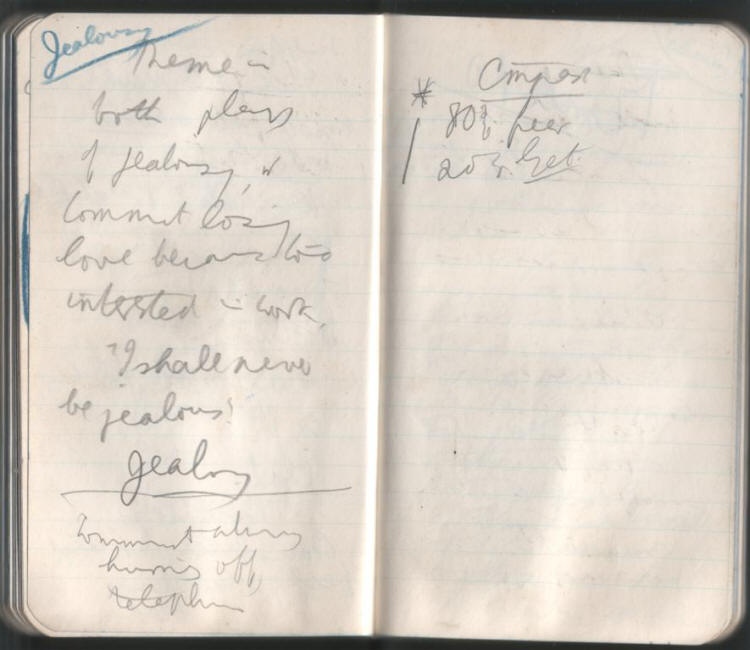 Jealousy
Theme –
both plays
of jealousy,
Commut losing
love because too
interested in work.
"I shall never
be jealous"
Jealousy
Commut always
hurries off,
telephone
80%
20%